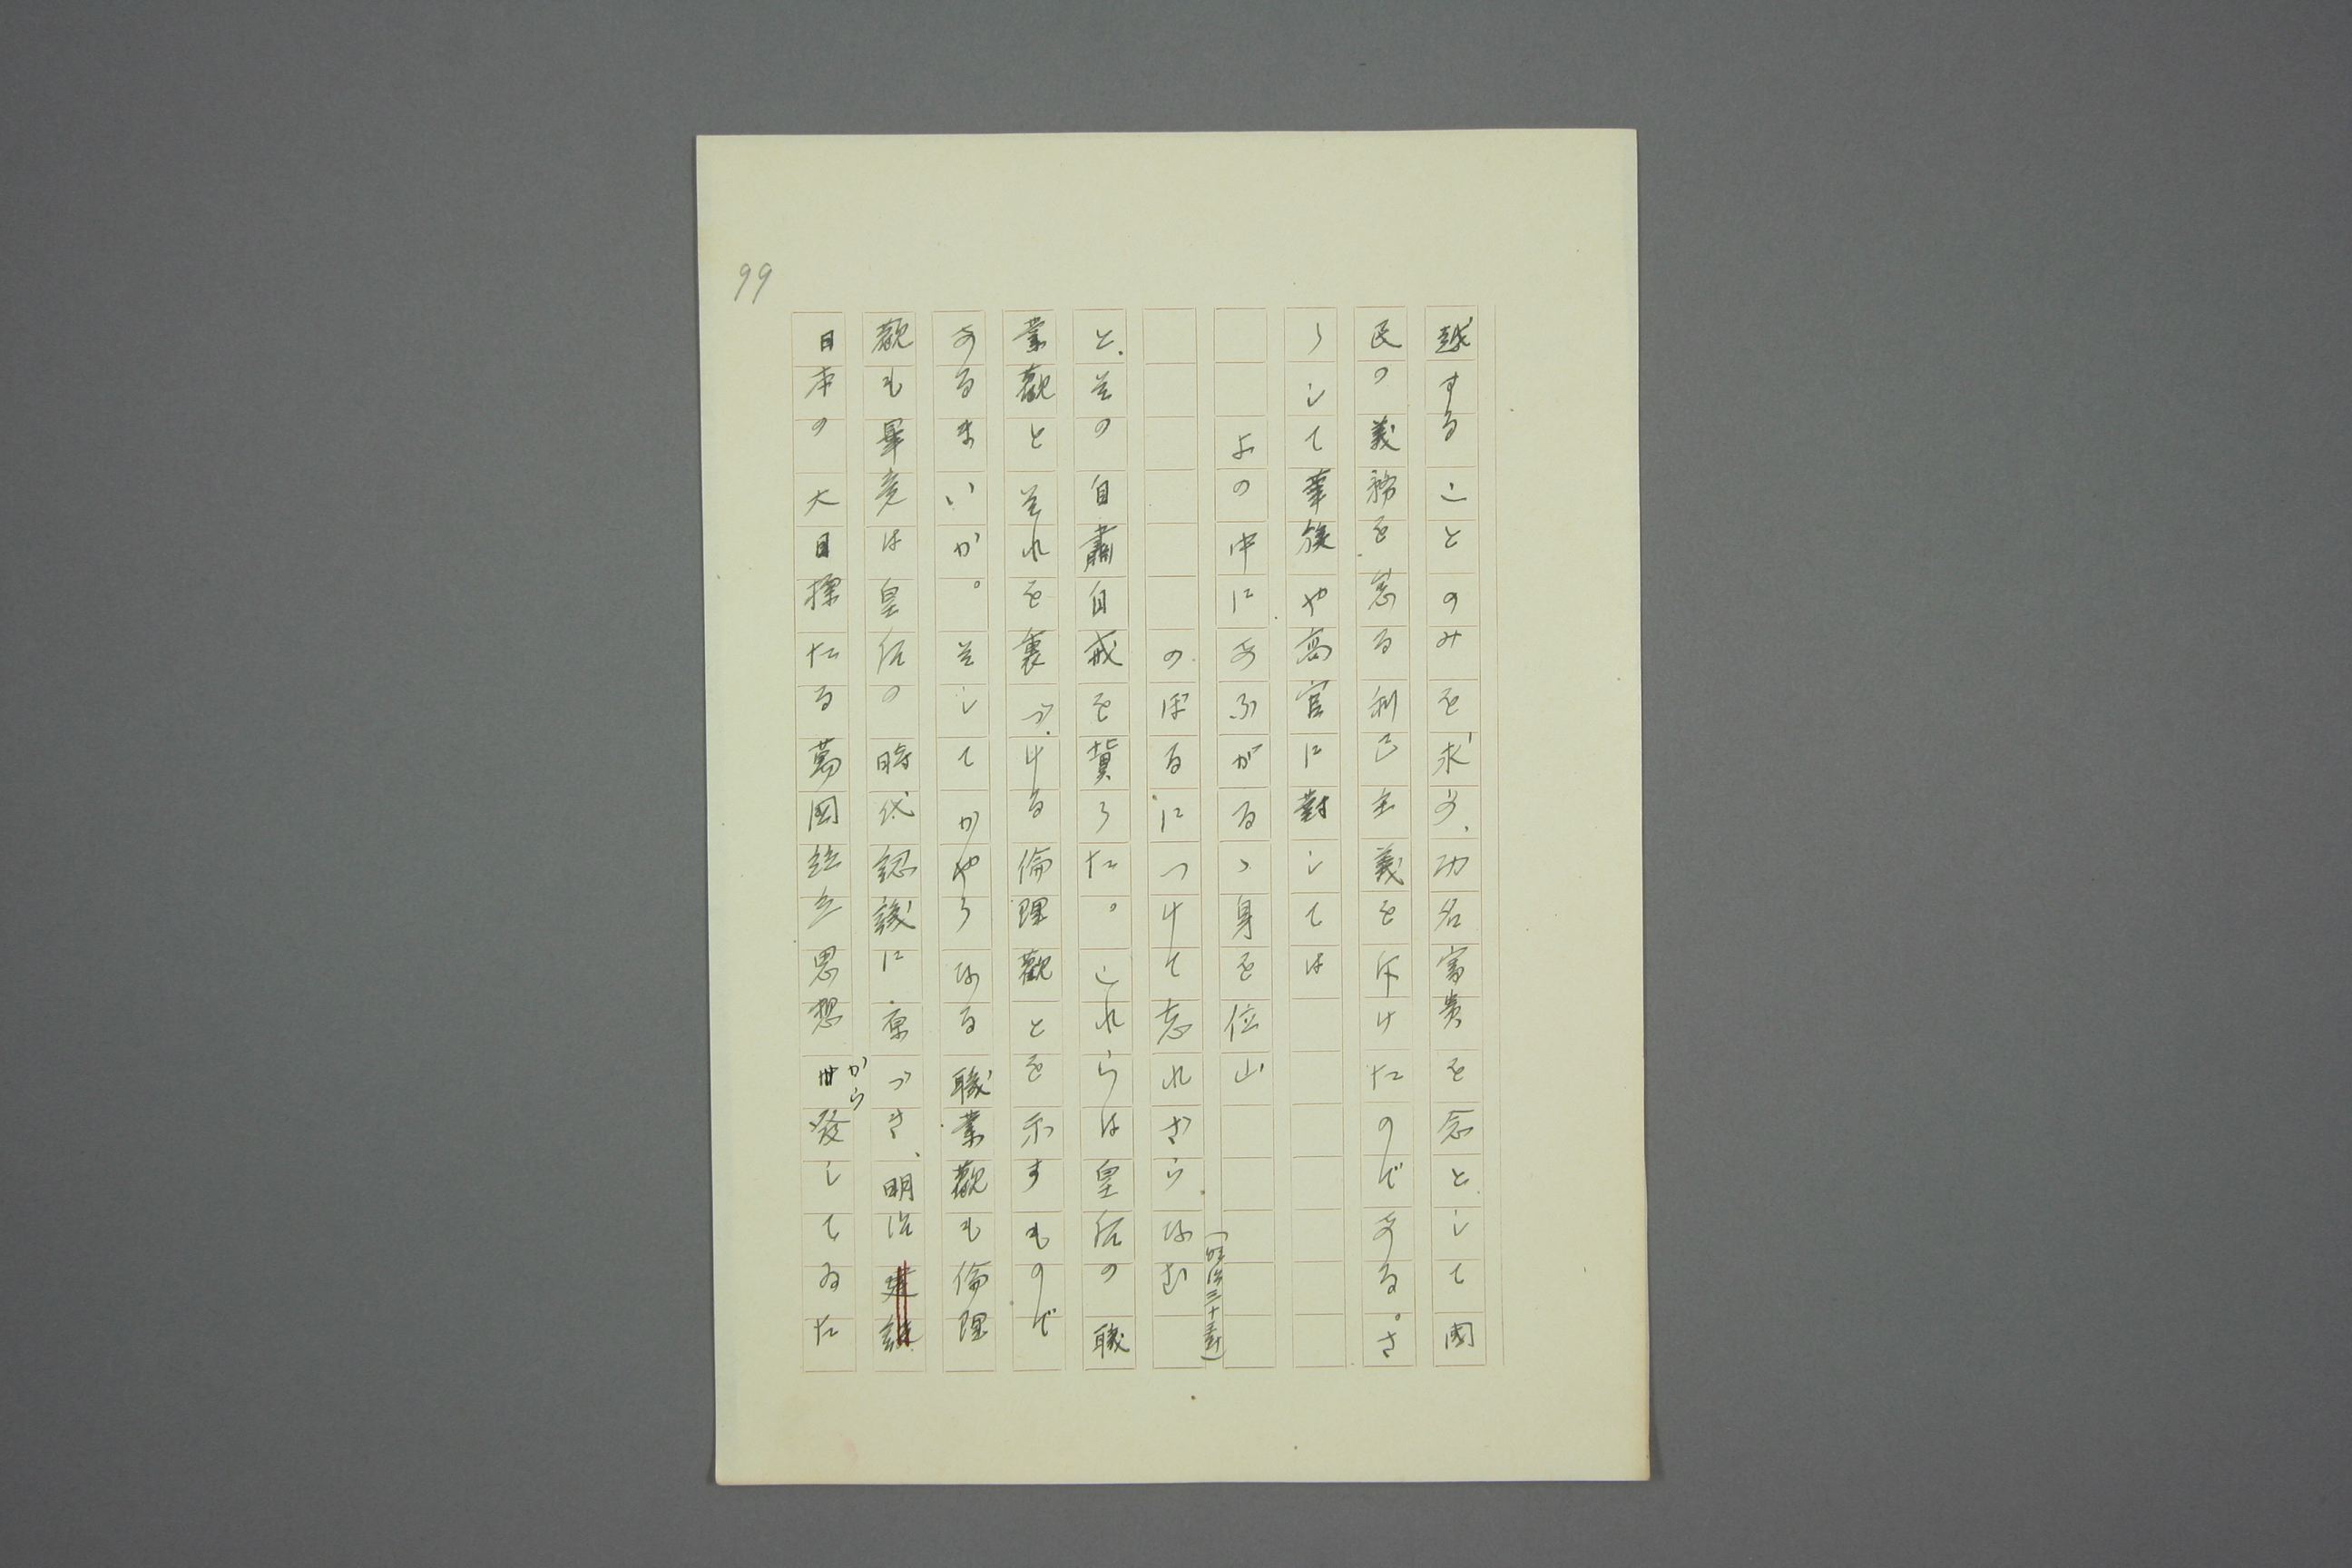 99
越することのみを求め、功名富貴を念として國
民の義務を怠る利己主義を斥けたのである。さ
うして華族や高官に對しては
よの中にあふがるゝ身を位山
のぼるにつけて忘れざらなむ
(明治三十三年)
と、その自肅自戒を冀うた。これらは皇后の職
業觀とそれを裏づける倫理觀とを示すもので
あるまいか。そしてかやうなる職業觀も倫理
觀も畢竟は皇后の時代認識に原づき、明治建設
日本の大目標たる萬國竝立思想から發してゐた